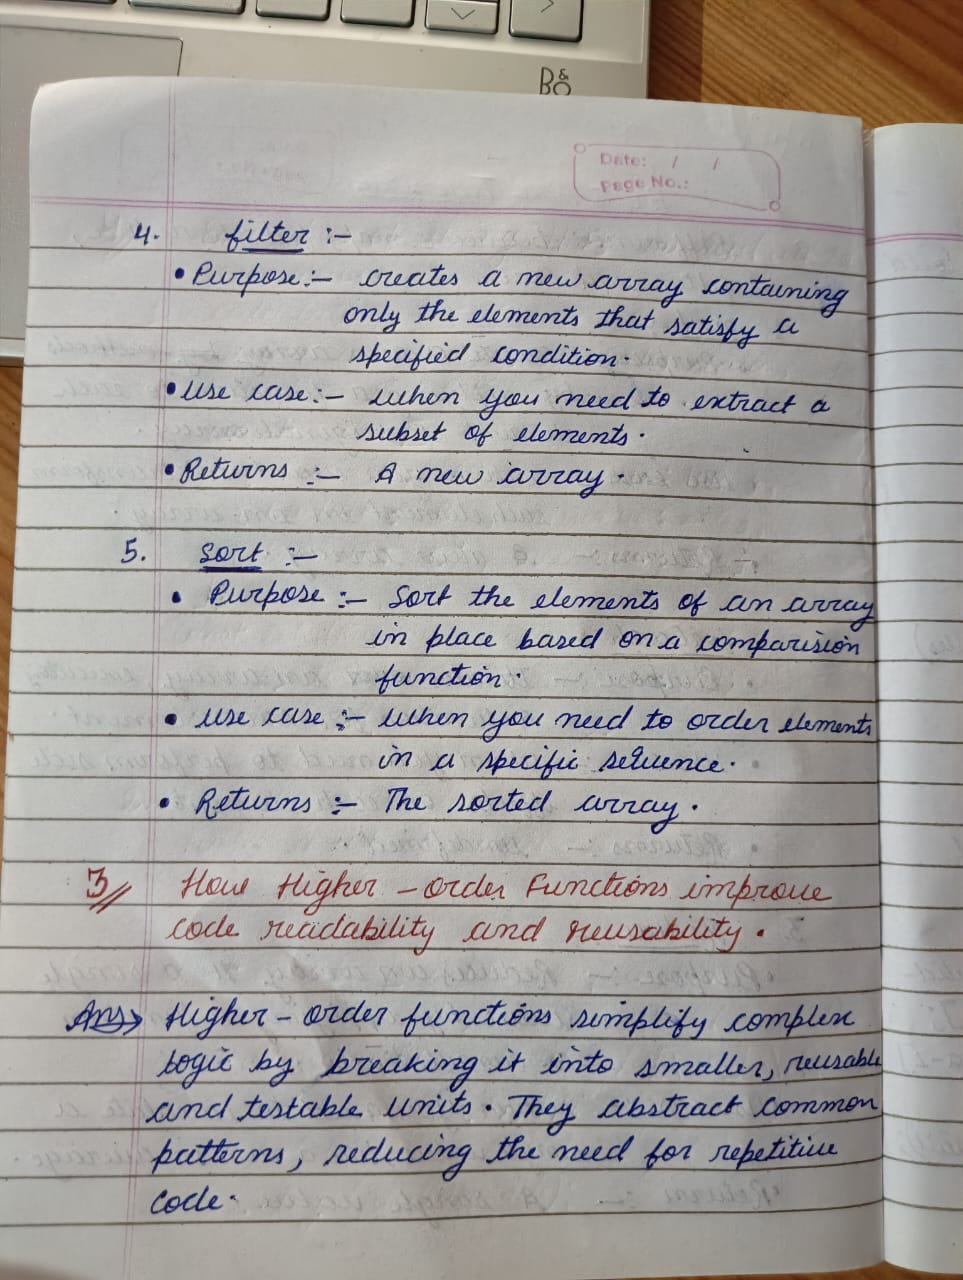 B&O
Date: / /
Page No.:
4. filter :-
• Purpose :- creates a new array containing
only the elements that satisfy a
specified condition.
• Use case :- when you need to extract a
subset of elements.
• Returns :- A new array.
5. Sort :-
• Purpose :- Sort the elements of an array
in place based on a comparision
function.
• Use case :- when you need to order elements
in a specific sequence.
• Returns :- The sorted array.
3// How Higher-order Functions improve
code readability and reusability.
Ans→ Higher-order functions simplify complex
logic by breaking it into smaller, reusable
and testable units. They abstract common
patterns, reducing the need for repetitive
code.